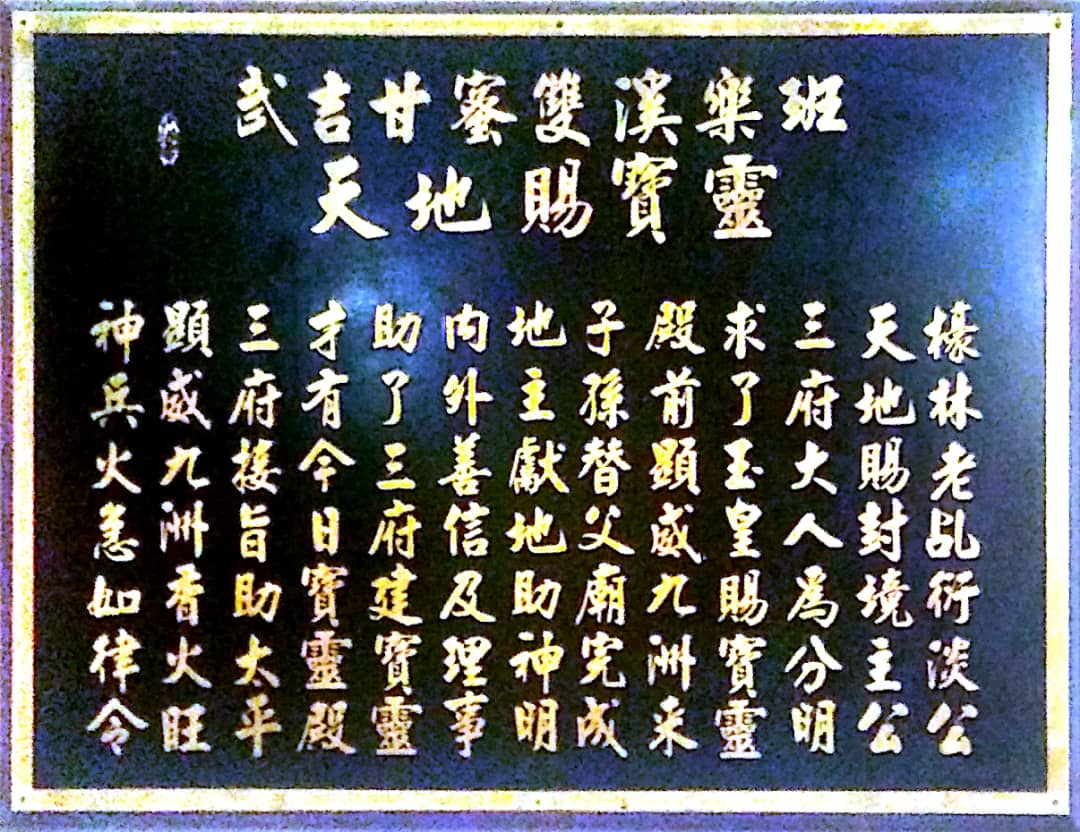 武吉甘蜜雙溪樂班
天地賜寶靈
橡林老乩衍淡公
天地賜封境主公
三府大人為分明
求了玉皇賜寶靈
殿前顯威九洲来
子孫替父廟完成
地主獻地助神明
內外善信及理事
助了三府建寶靈
才有今日寶靈殿
三府接旨助太平
顯威九洲香火旺
神兵火急如律令